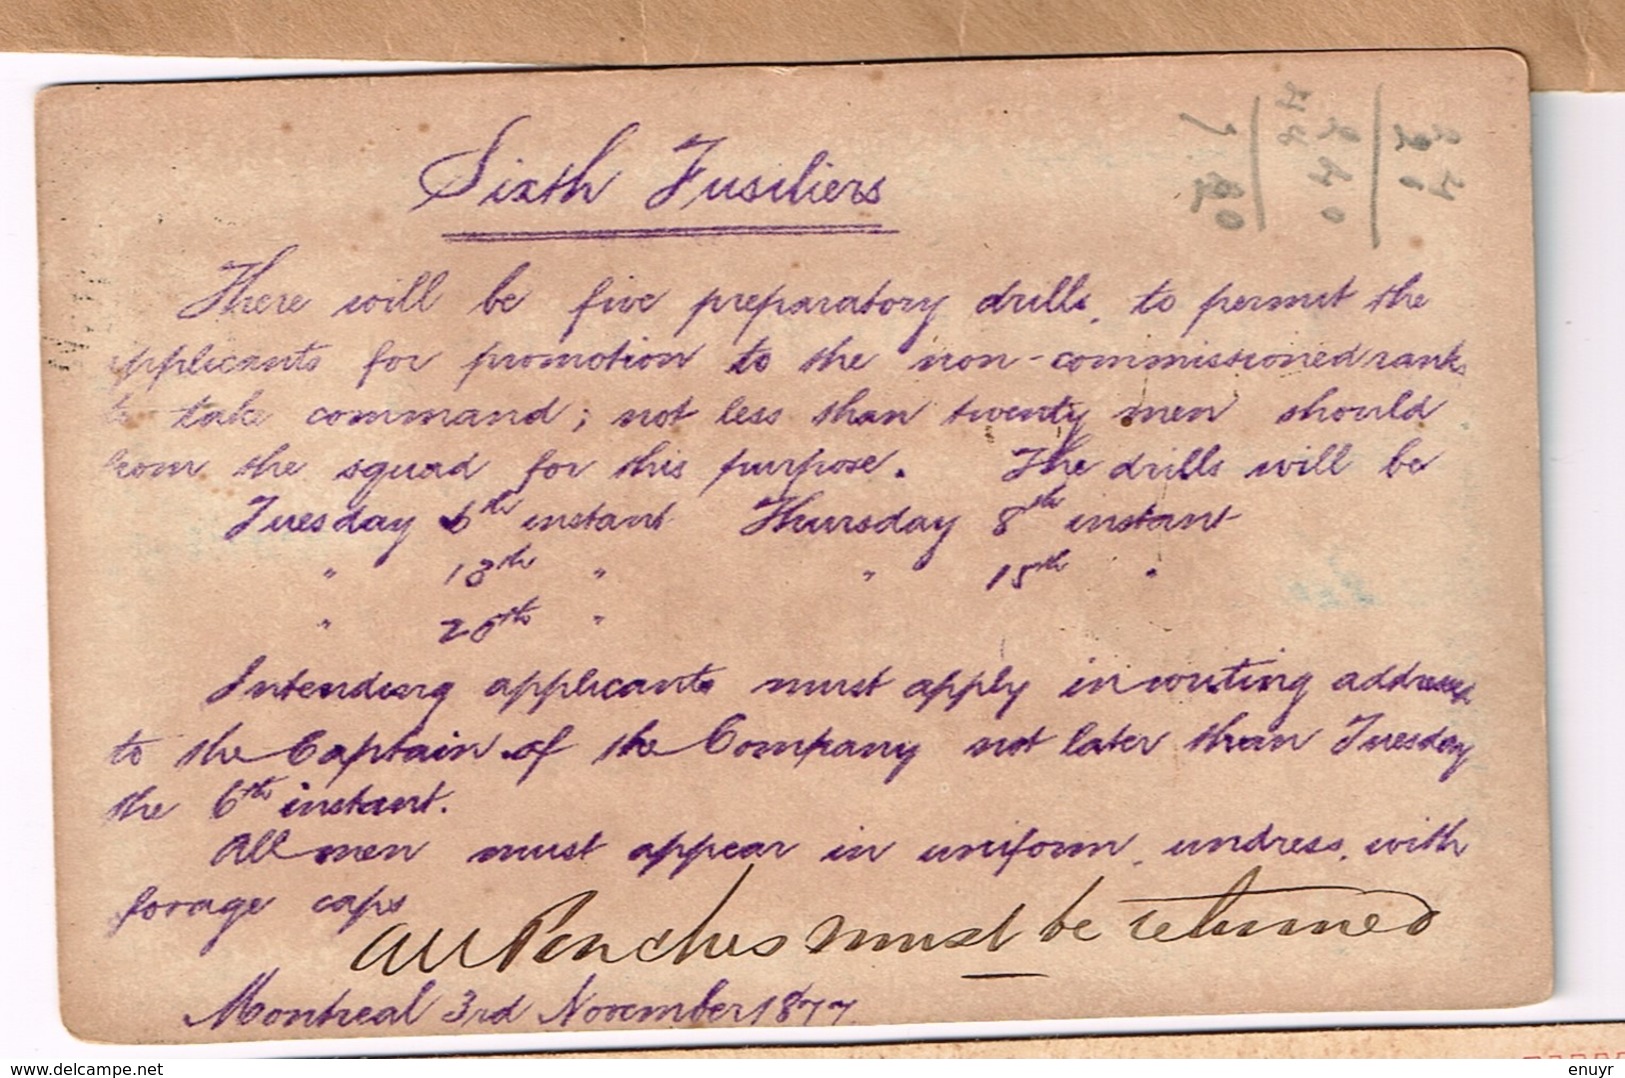 Sixth Fusiliers
There will be five preparatory drills, to permit the
applicants for promotion to the non-commissioned rank
to take command; not less than twenty men should
from the squad for this purpose. The drills will be
Tuesday 6th instant Thursday 8th instant
" 13th " " 15th "
" 20th "
Intending applicants must apply in writing addressed
to the Captain of the Company not later than Tuesday
the 6th instant.
All men must appear in uniform, undress, with
forage caps
all Pouches must be returned
Montreal 3rd November 1877
delcampe.net
enuyr